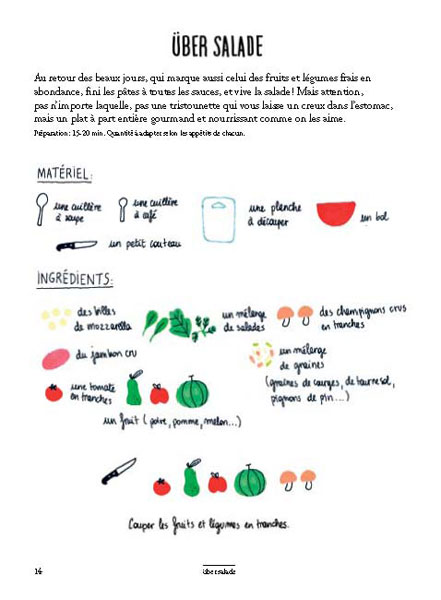 ÜBER SALADE
Au retour des beaux jours, qui marque aussi celui des fruits et légumes frais en
abondance, fini les pâtes à toutes les sauces, et vive la salade! Mais attention,
pas n'importe laquelle, pas une tristounette qui vous laisse un creux dans l'estomac,
mais un plat à part entière gourmand et nourrissant comme on les aime.
Préparation: 15-20 min. Quantité à adapter selon les appétits de chacun.
MATÉRIEL:
une cuillère
à soupe
une cuillère
à café
une planche
à découper
un bol
un petit couteau
INGRÉDIENTS:
des billes
de mozzarella
un mélange
de salades
des champignons crus
en tranches
du jambon cru
un mélange
de graines
(graines de courges, de tournesol,
pignons de pin...)
une tomate
en tranches
un fruit (poire, pomme, melon...)
Couper les fruits et légumes en tranches.
14
Über salade